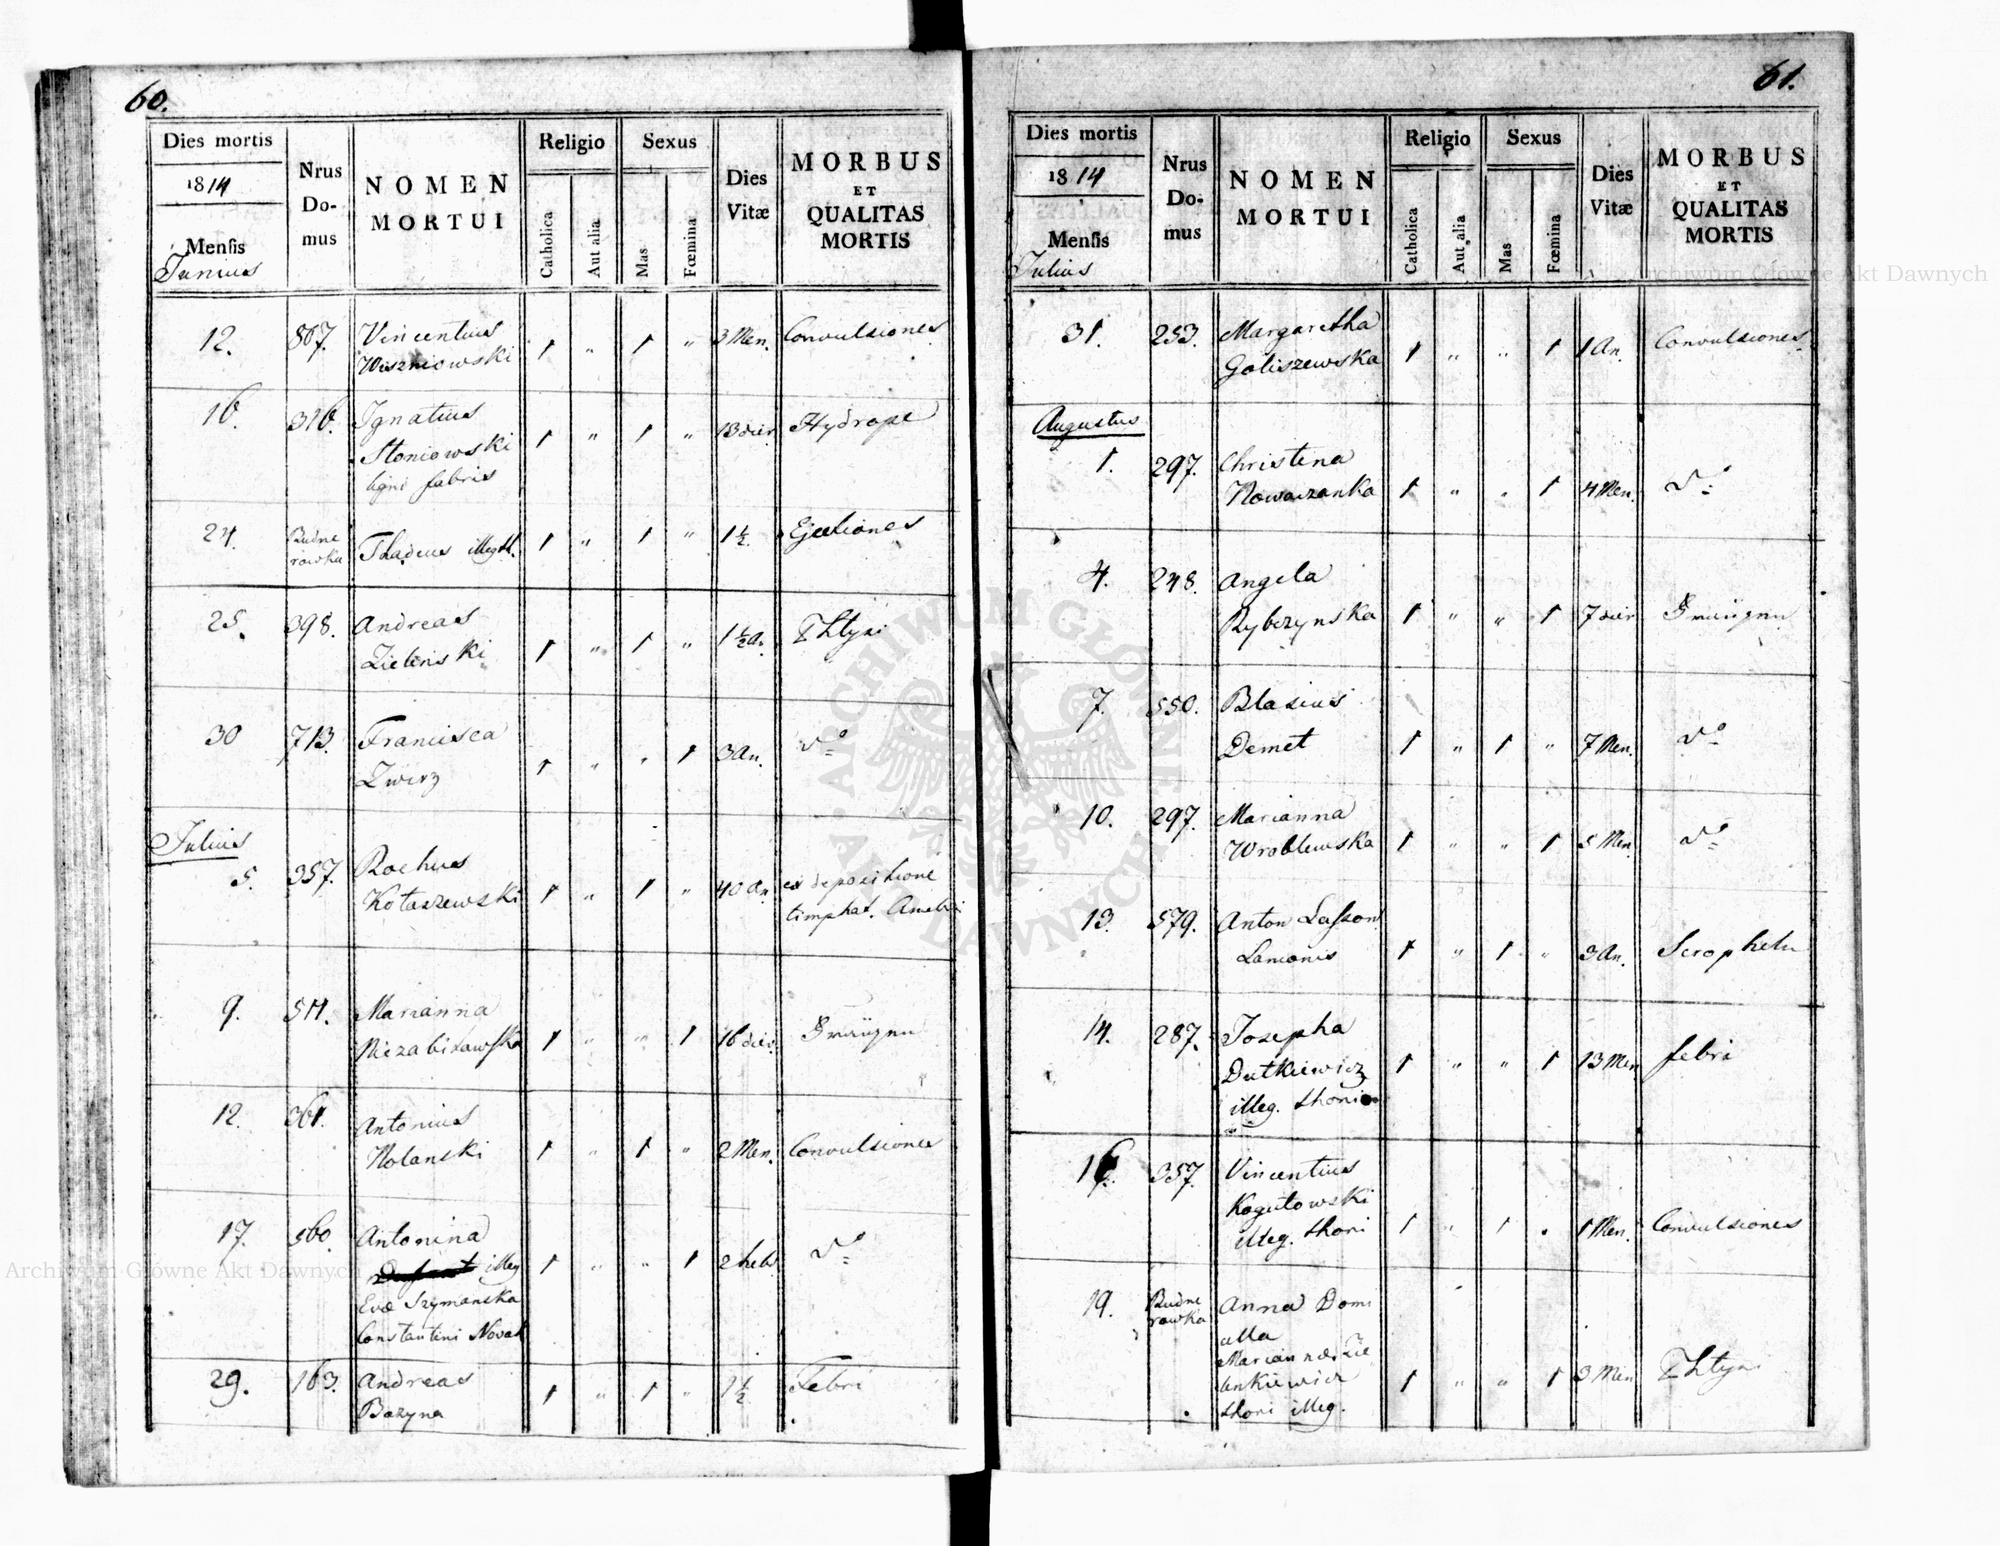 60.
Dies mortis
1814
Mensis
Junius
Nrus
Do-
mus
NOMEN
MORTUI
Religio
Catholica
Aut alia
Sexus
Mas
Fœmina
Dies
Vitæ
MORBUS
ET
QUALITAS
MORTIS
12. 807. Vincentius 1 " 1 " 3 Men. Convulsiones
Wiszniowski
16. 316. Ignatius 1 " 1 " 13 dier Hydrope
Stoniowski
ligni fabris
24. Rudne 1 " 1 " 1½. Ejectiones
rowka Thadeus illegit.
25. 398. Andreas 1 " 1 " 1½ a.
Zielenski
30 713. Francisca 1 " " 1 3 an. do
Zwierz
Julius
5. 357. Rochus 1 " 1 " 40 an. ex depositione
Kotaszewski
9. 511. Marianna 1 " " 1 16 dier.
12. 361. Antonius 1 " 1 " 2 Men. Convulsiones
Nolanski
17. 560. Antonina 1 " " 1 2 heb. do
illeg
Evæ Szymanska
Constantini Novak
29. 163. Andreas 1 " 1 " 1½ Febri
Bazyna
61.
Dies mortis
1814
Mensis
Julius
Nrus
Do-
mus
NOMEN
MORTUI
Religio
Catholica
Aut alia
Sexus
Mas
Fœmina
Dies
Vitæ
MORBUS
ET
QUALITAS
MORTIS
31. 253. Margaretha 1 " " 1 1 An. Convulsiones
Goliszewska
Augustus
1. 297. Christina 1 " " 1 4 Men. do
Nowaczanka
4. 248. Angela 1 " " 1 7 dier
Rybczynska
7. 550. Blasius 1 " 1 " 7 Men. do
Demet
10. 297. Marianna 1 " " 1 5 Men. do
Wroblewska
13. 579. Anton 1 " 1 " 3 An.
Lanionis
14. 287. Josepha 1 " " 1 13 Men febri
Dutkiewicz
illeg. thori
357. Vincentius 1 " 1 " 1 Men. Convulsiones
Kogutowski
illeg. thori
19. Rudne Anna Domi 1 " " 1 3 Men
rowka
cella
thori illeg.
Archiwum Główne Akt Dawnych
Archiwum Główne Akt Dawnych
ARCHIWUM GŁÓWNE AKT DAWNYCH